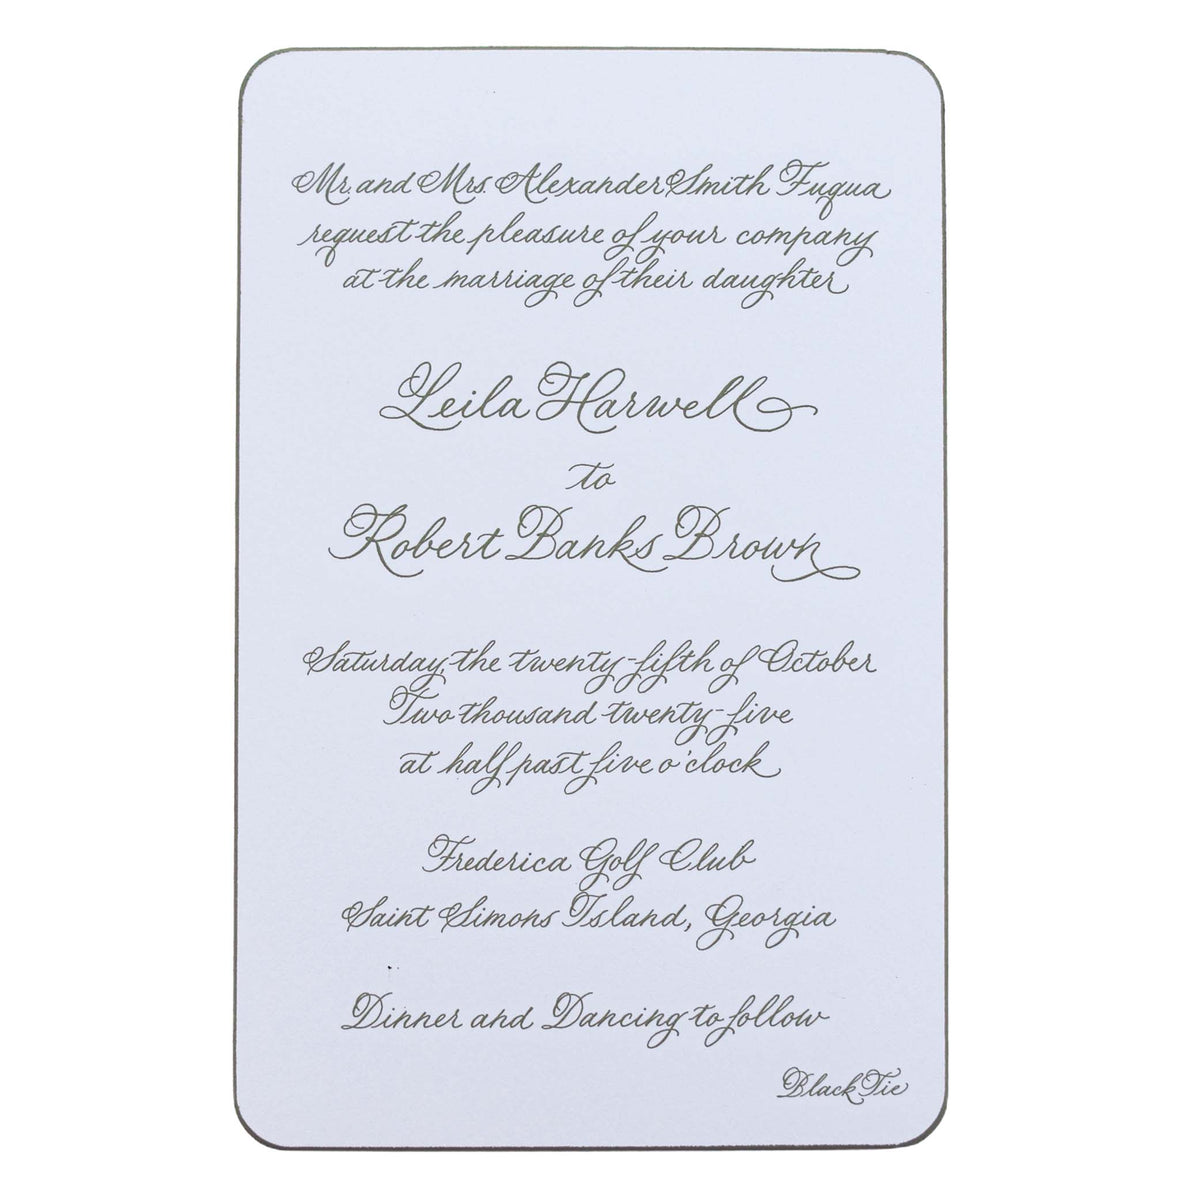 Mr. and Mrs. Alexander Smith Fuqua
request the pleasure of your company
at the marriage of their daughter
Leila Harwell
to
Robert Banks Brown
Saturday, the twenty-fifth of October
Two thousand twenty-five
at half past five o'clock
Frederica Golf Club
Saint Simons Island, Georgia
Dinner and Dancing to follow
Black Tie